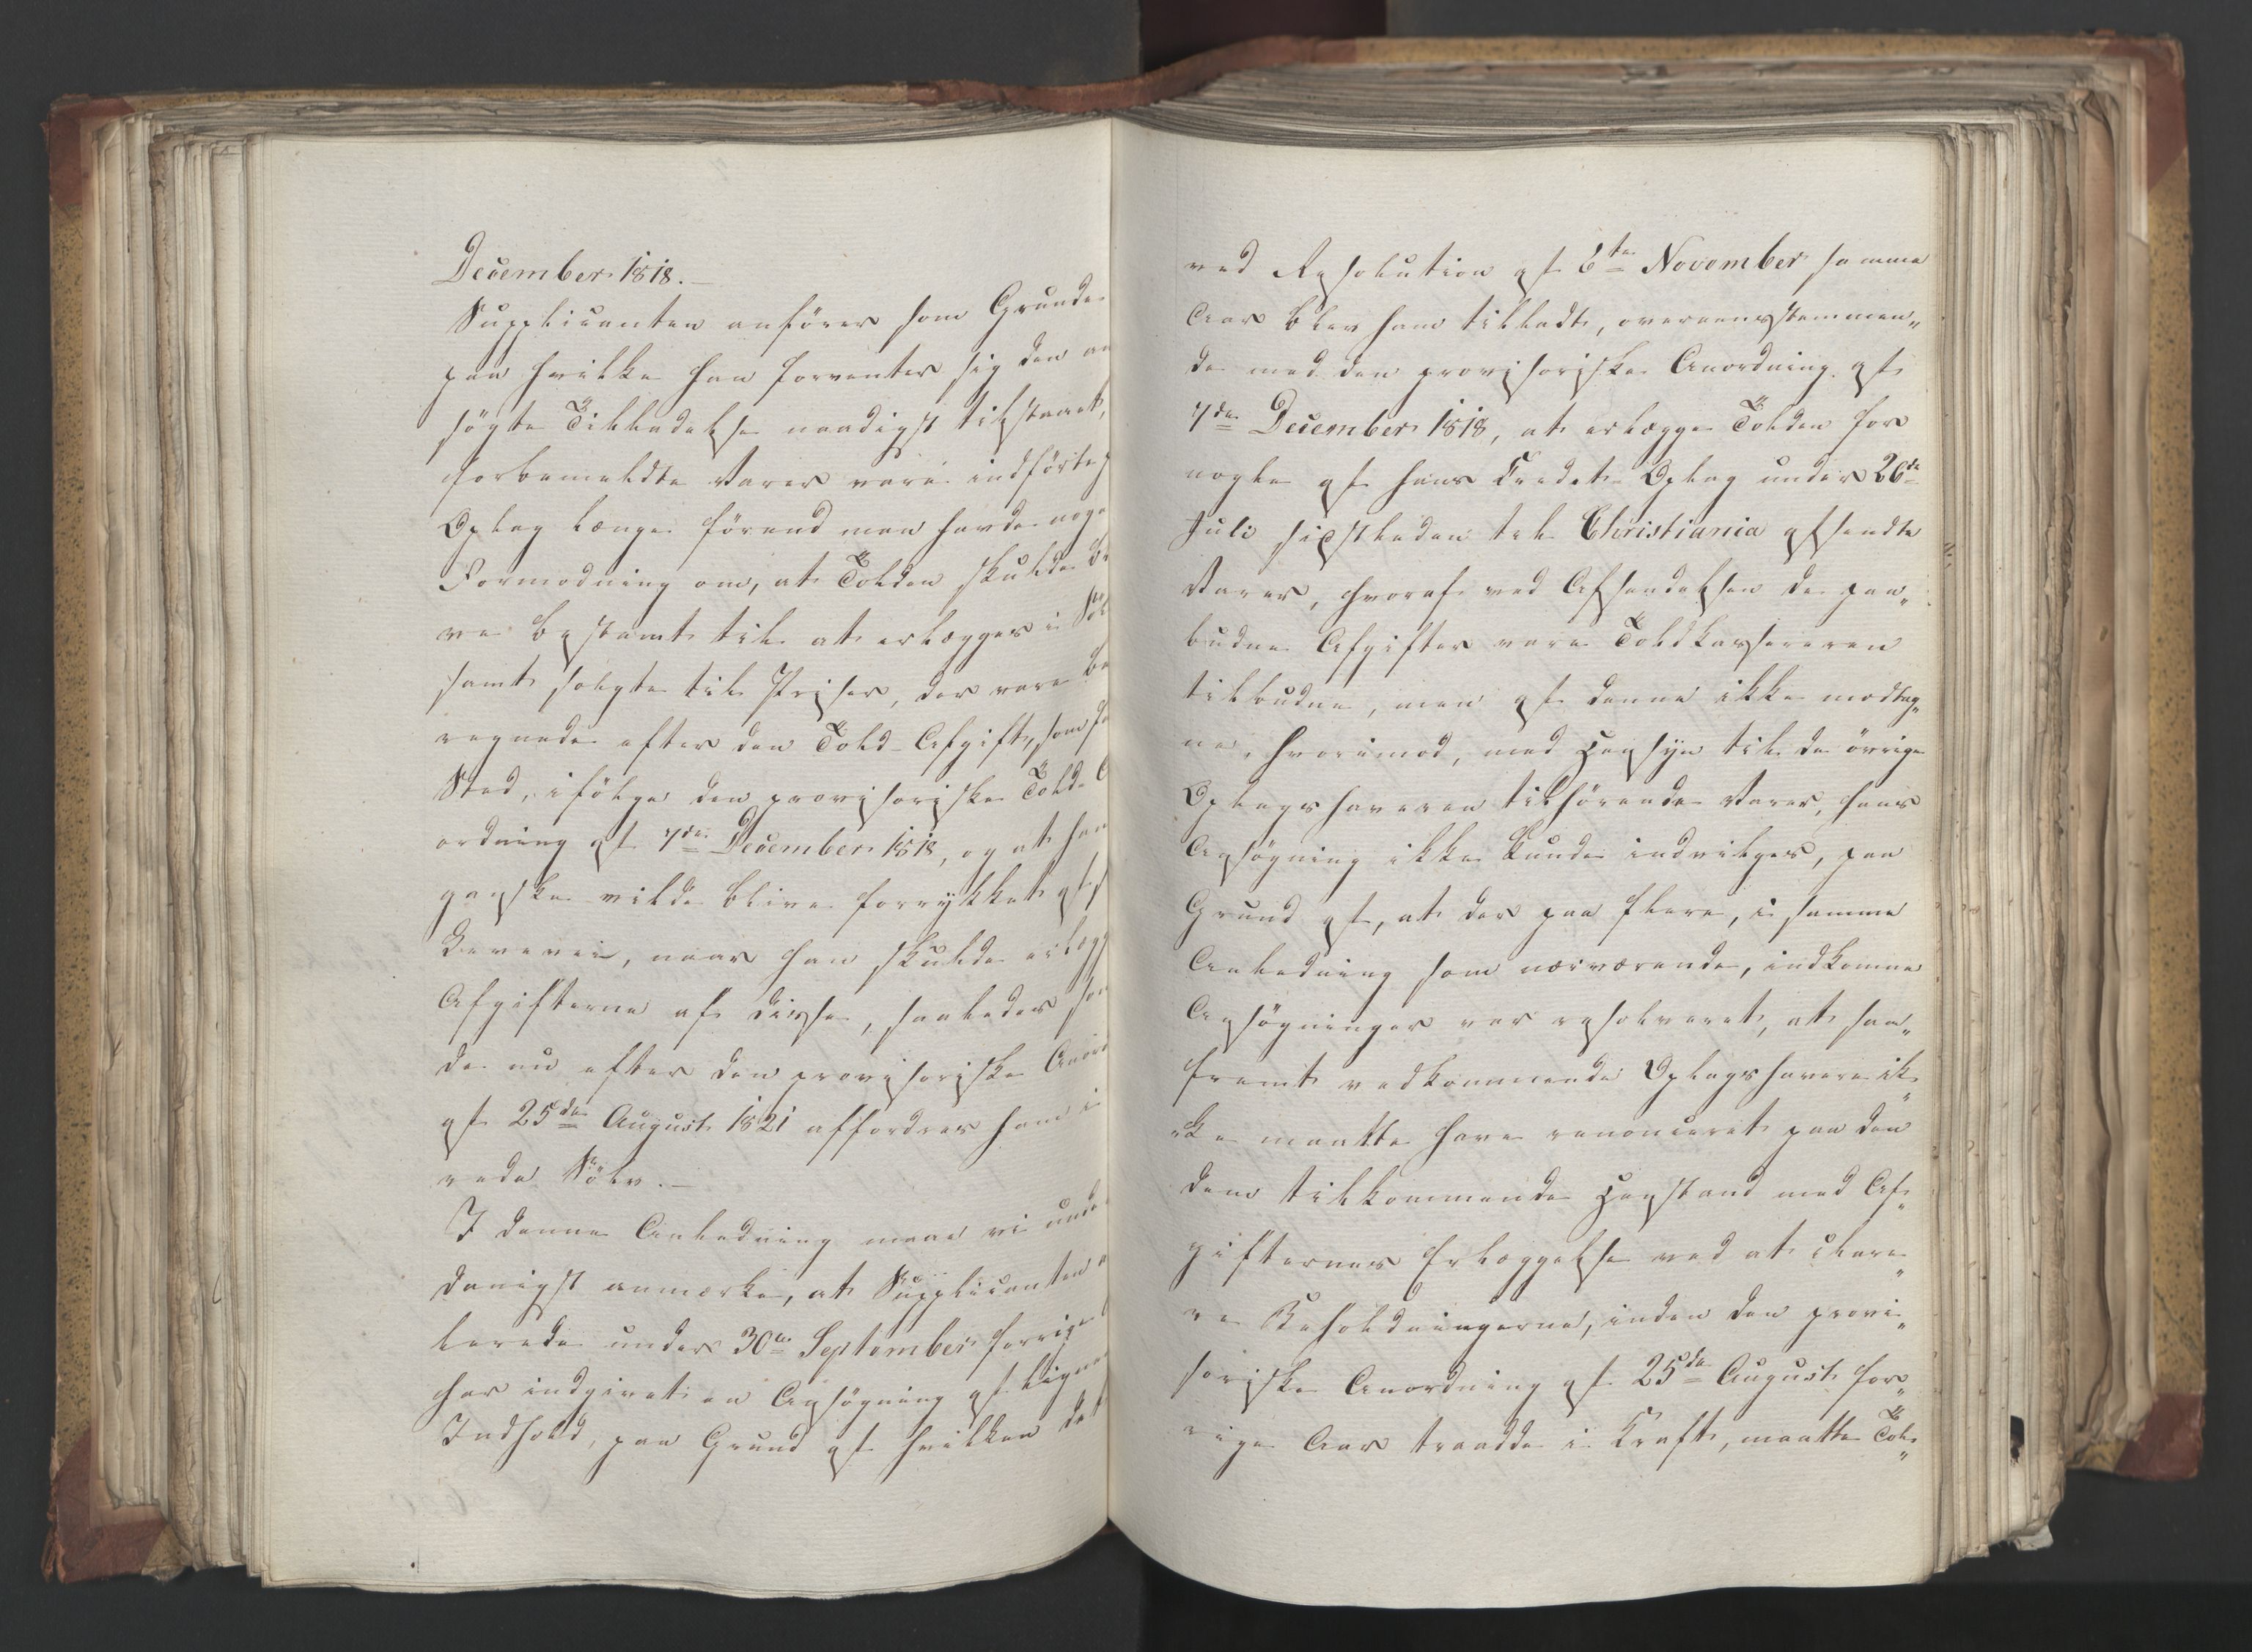 December 1818.-
Supplicanten anförer som Grunde
paa hvilke han forventer sig den an
søgte Tilladelse naadigst tilstaaet,
forbemeldte Varer vare indførte p
Oplag længe förend man havde noge
Formodning om, at Tolden skulde bl
ve bestemt til at erlægges i Söl
samt solgte til Priser, der vare be
regnede efter den Told-Afgift, som fa
Sted, ifölge den provisoriske Told-
ordning af 7de December 1818, og at han
ganske vilde blive forrykket af s
Levevei, naar han skulde erlægg
Afgifterne af disse, saaledes som
de nu efter den provisoriske Anord
af 25de August 1821 affordres ham i
rede Sölv.-
I denne Anledning maae vi unde
danigst anmærke, at Supplicanten
lerede under 30te September forrige
har indgivet en Ansögning af lign
Indhold, paa Grund af hvilken det
ved Resolution af 6te November samme
Aar blev ham tilladt, overeensstemmen„
de med den provisoriske Anordning af
7de December 1818, at erlægge Tolden for
nogle af hans Credit-Oplag under 26de
Juli sidstleden til Christiania afsendte
Varer, hvoraf ved Afsendelsen de paa„
budne Afgifter vare Toldkassereren
tilbudne, men af denne ikke modtag„
ne, hvorimod, med Hensyn til de övrige
Oplagshaveren tilhörende Varer, hans
Ansögning ikke kunde indvilges, paa
Grund af, at der paa flere, i samme
Anledning som nærværende, indkomne
Ansögninger var resolveret, at saa„
fremt vedkommende Oplagshavere ik„
„ke maatte have renonceret paa den
dem tilkommende Henstand med Af„
gifternes Erlæggelse ved at clare„
re Beholdningerne, inden den provi„
soriske Anordning af 25de August for„
rige Aar traadte i Kraft, maatte Tol„